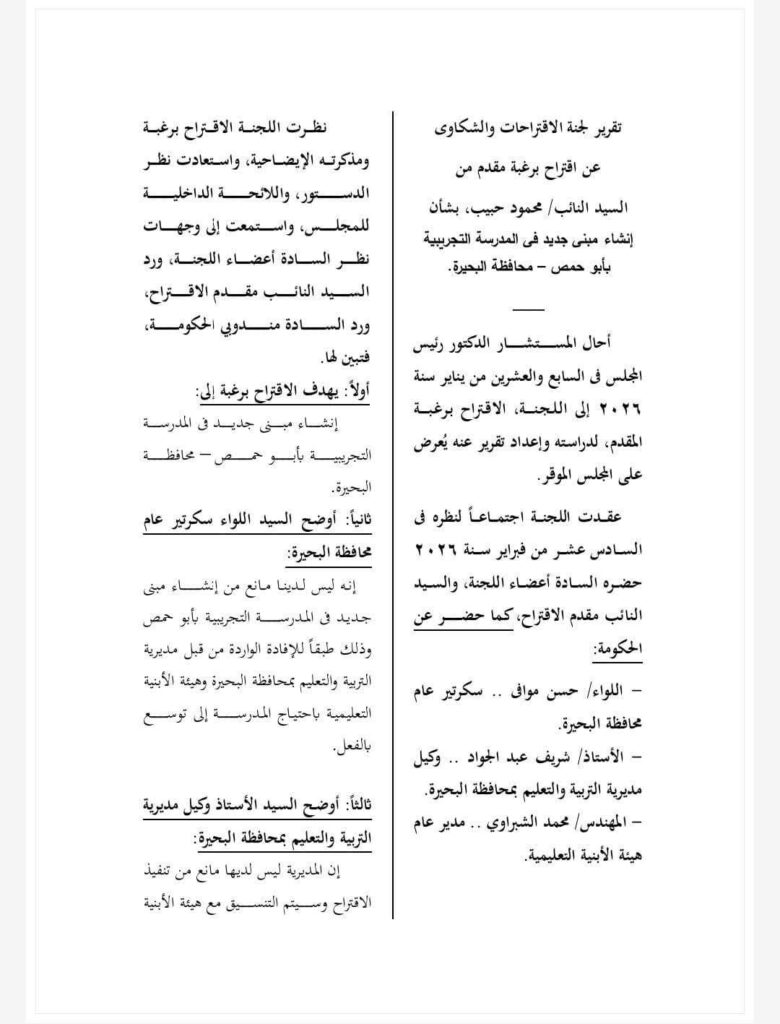 تقرير لجنة الاقتراحات والشكاوى
عن اقتراح برغبة مقدم من
السيد النائب/ محمود حبيب، بشأن
إنشاء مبنى جديد فى المدرسة التجريبية
بأبو حمص – محافظة البحيرة.
أحال المستشار الدكتور رئيس
المجلس فى السابع والعشرين من يناير سنة
٢٠٢٦ إلى اللجنة، الاقتراح برغبة
المقدم، لدراسته وإعداد تقرير عنه يُعرض
على المجلس الموقر.
عقدت اللجنة اجتماعاً لنظره فى
السادس عشر من فبراير سنة ٢٠٢٦
حضره السادة أعضاء اللجنة، والسيد
النائب مقدم الاقتراح، كما حضر عن
الحكومة:
– اللواء/ حسن موافى .. سكرتير عام
محافظة البحيرة.
– الأستاذ/ شريف عبد الجواد .. وكيل
مديرية التربية والتعليم بمحافظة البحيرة.
– المهندس/ محمد الشبراوي .. مدير عام
هيئة الأبنية التعليمية.
نظرت اللجنة الاقتراح برغبة
ومذكرته الإيضاحية، واستعادت نظر
الدستور، واللائحة الداخلية
للمجلس، واستمعت إلى وجهات
نظر السادة أعضاء اللجنة، ورد
السيد النائب مقدم الاقتراح،
ورد السادة مندوبي الحكومة،
فتبين لها.
أولاً: يهدف الاقتراح برغبة إلى:
إنشاء مبنى جديد فى المدرسة
التجريبية بأبو حمص – محافظة
البحيرة.
ثانياً: أوضح السيد اللواء سكرتير عام
محافظة البحيرة:
إنه ليس لدينا مانع من إنشاء مبنى
جديد فى المدرسة التجريبية بأبو حمص
وذلك طبقاً للإفادة الواردة من قبل مديرية
التربية والتعليم بمحافظة البحيرة وهيئة الأبنية
التعليمية باحتياج المدرسة إلى توسع
بالفعل.
ثالثاً: أوضح السيد الأستاذ وكيل مديرية
التربية والتعليم بمحافظة البحيرة:
إن المديرية ليس لديها مانع من تنفيذ
الاقتراح وسيتم التنسيق مع هيئة الأبنية